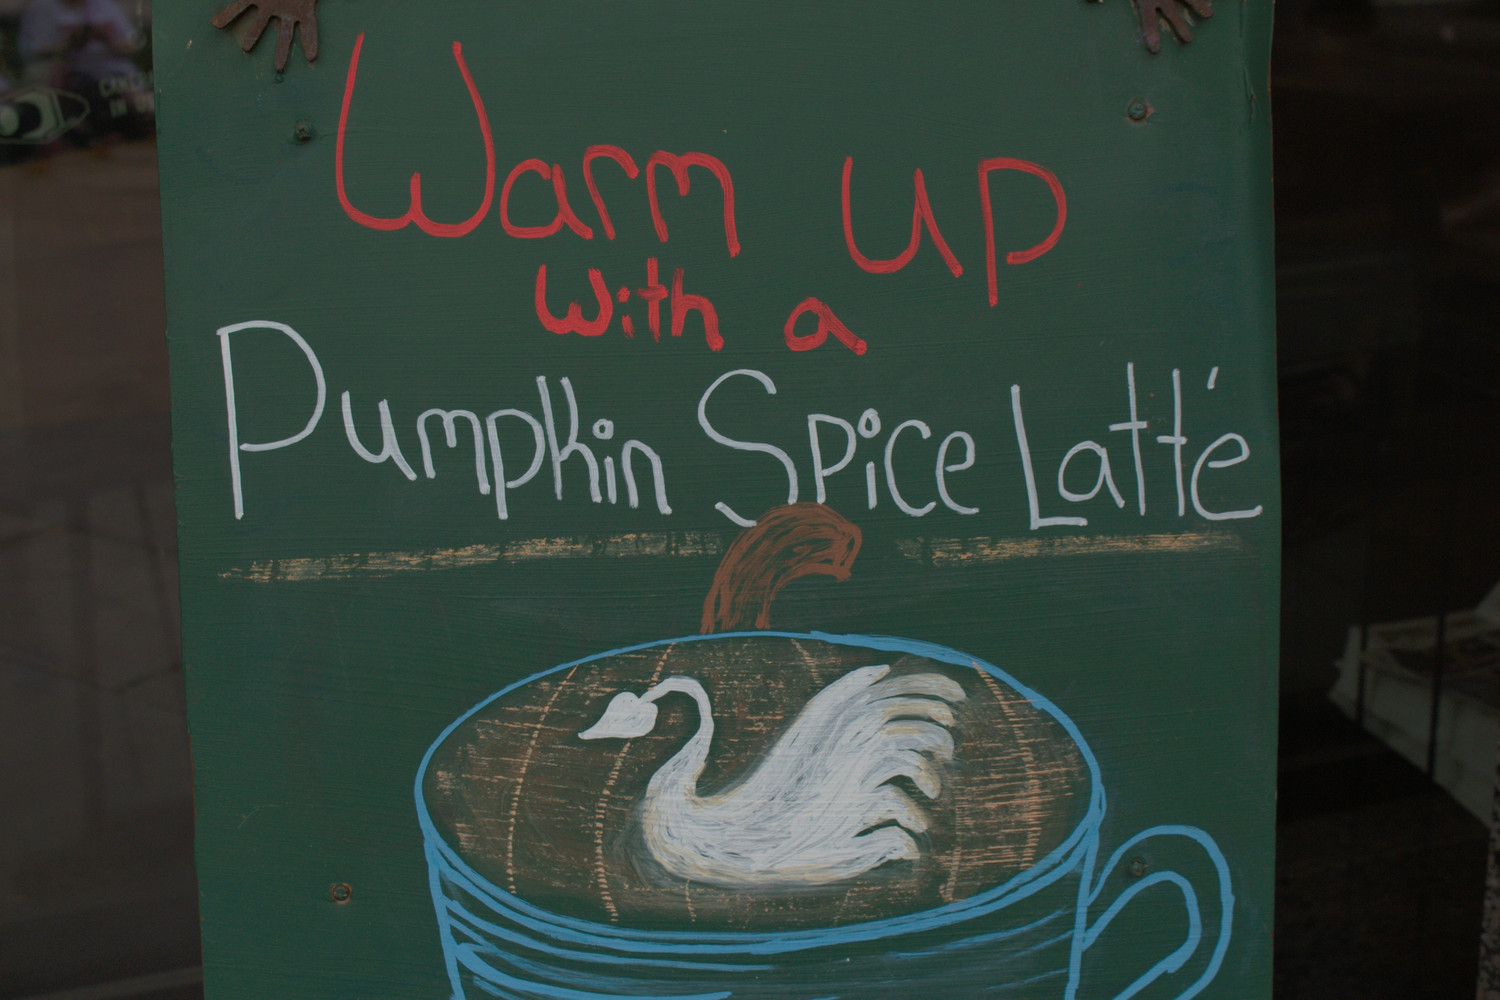 Warm up
with a
Pumpkin Spice Latte'